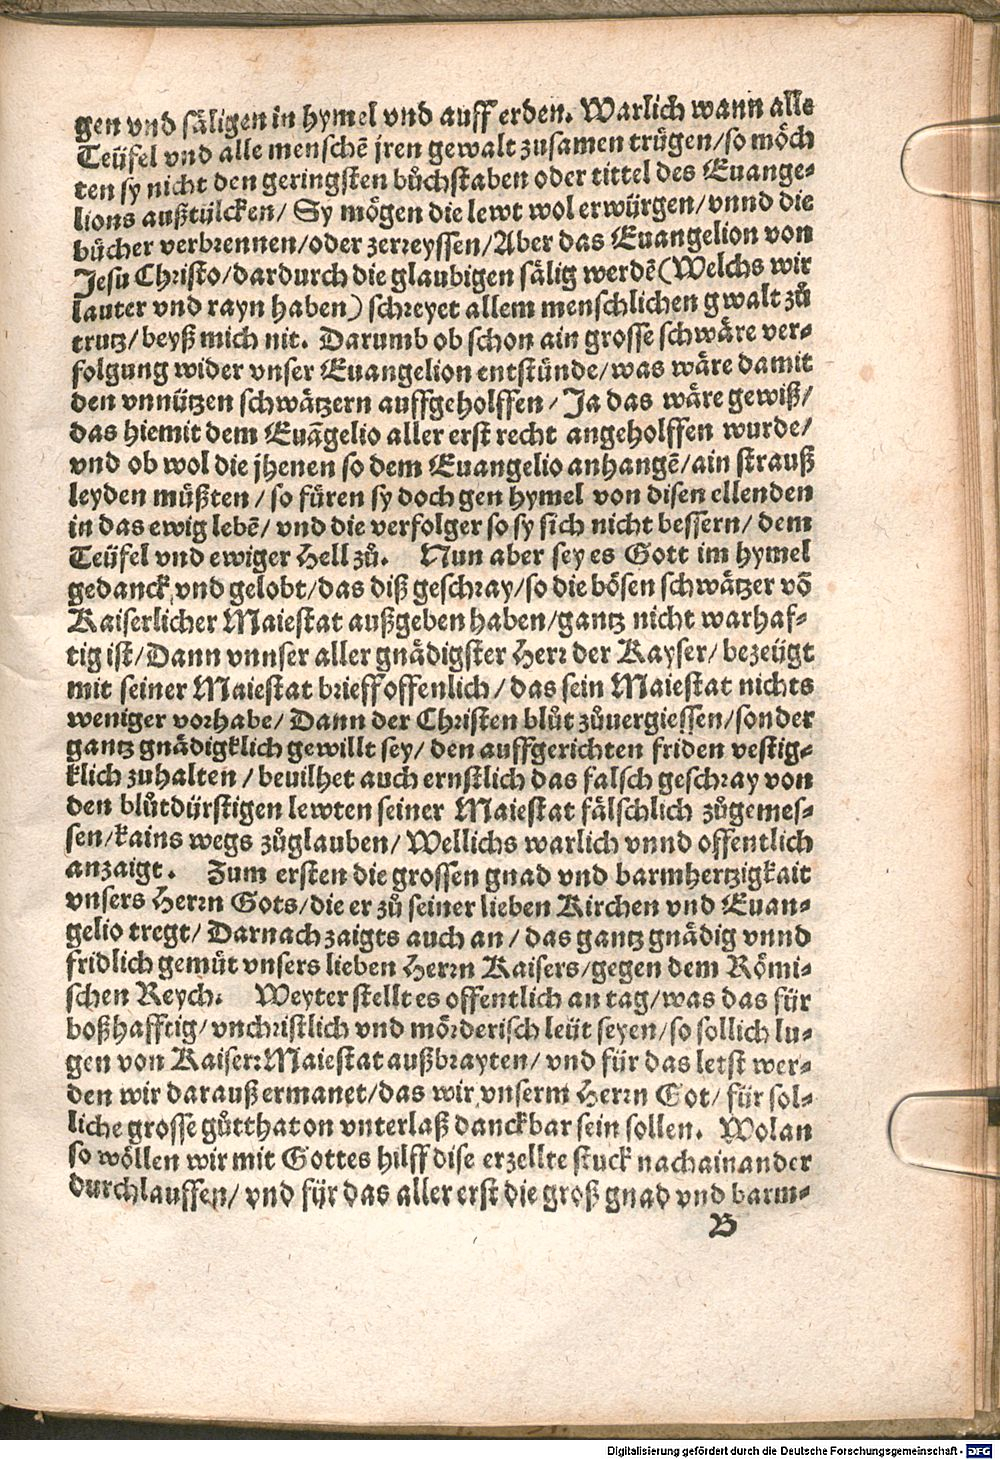 gen vnd säligen in hymel vnd auff erden. Warlich wann alle
Teüfel vnd alle menschē jren gewalt zusamen trügen/so möch
ten sy nicht den geringsten bůchstaben oder tittel des Euange-
lions außtülcken/ Sy mögen die lewt wol erwürgen/vnnd die
bücher verbrennen/oder zerreyssen/Aber das Euangelion von
Jesu Christo/dardurch die glaubigen sälig werdē(Welchs wir
lauter vnd rayn haben) schreyet allem menschlichen gwalt zů
trutz/beyß mich nit. Darumb ob schon ain grosse schwäre ver-
folgung wider vnser Euangelion entstünde/was wäre damit
den vnnützen schwätzern auffgeholffen/ Ja das wäre gewiß/
das hiemit dem Euāgelio aller erst recht angeholffen wurde/
vnd ob wol die jhenen so dem Euangelio anhangē/ain strauß
leyden müßten/so füren sy doch gen hymel von disen ellenden
in das ewig lebē/ vnd die verfolger so sy sich nicht bessern/ dem
Teüfel vnd ewiger Hell zů. Nun aber sey es Gott im hymel
gedanck vnd gelobt/das diß geschray/so die bösen schwätzer vō
Kaiserlicher Maiestat außgeben haben/gantz nicht warhaf-
tig ist/Dann vnnser aller gnädigster Herr der Kayser/ bezeügt
mit seiner Maiestat brieff offenlich/das sein Maiestat nichts
weniger vorhabe/ Dann der Christen blůt zůuergiessen/sonder
gantz gnädigklich gewillt sey/ den auffgerichten friden vestig-
klich zuhalten/ beuilhet auch ernstlich das falsch geschray von
den blůtdürstigen lewten seiner Maiestat fälschlich zůgemes-
sen/kains wegs zůglauben/ Wellichs warlich vnnd offentlich
anzaigt. Zum ersten die grossen gnad vnd barmhertzigkait
vnsers Herrn Gots/die er zů seiner lieben Kirchen vnd Euan-
gelio tregt/ Darnach zaigts auch an/ das gantz gnädig vnnd
fridlich gemüt vnsers lieben Herrn Kaisers/gegen dem Römi-
schen Reych. Weyter stellt es offentlich an tag/was das für
boßhafftig/vnchristlich vnd mörderisch leüt seyen/so sollich lu-
gen von Kaiser: Maiestat außbrayten/ vnd für das letst wer-
den wir darauß ermanet/das wir vnserm Herrn Got/ für sol-
liche grosse gütthat on vnterlaß danckbar sein sollen. Wolan
so wöllen wir mit Gottes hilff dise erzellte stuck nachainander
durchlauffen/ vnd für das aller erst die groß gnad vnd barm-
B
Digitalisierung gefördert durch die Deutsche Forschungsgemeinschaft - DFG